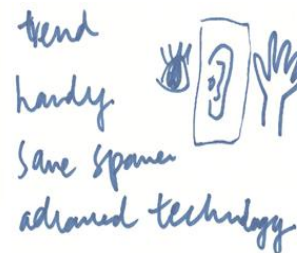 trend
handy
Save spaner
advanced technology